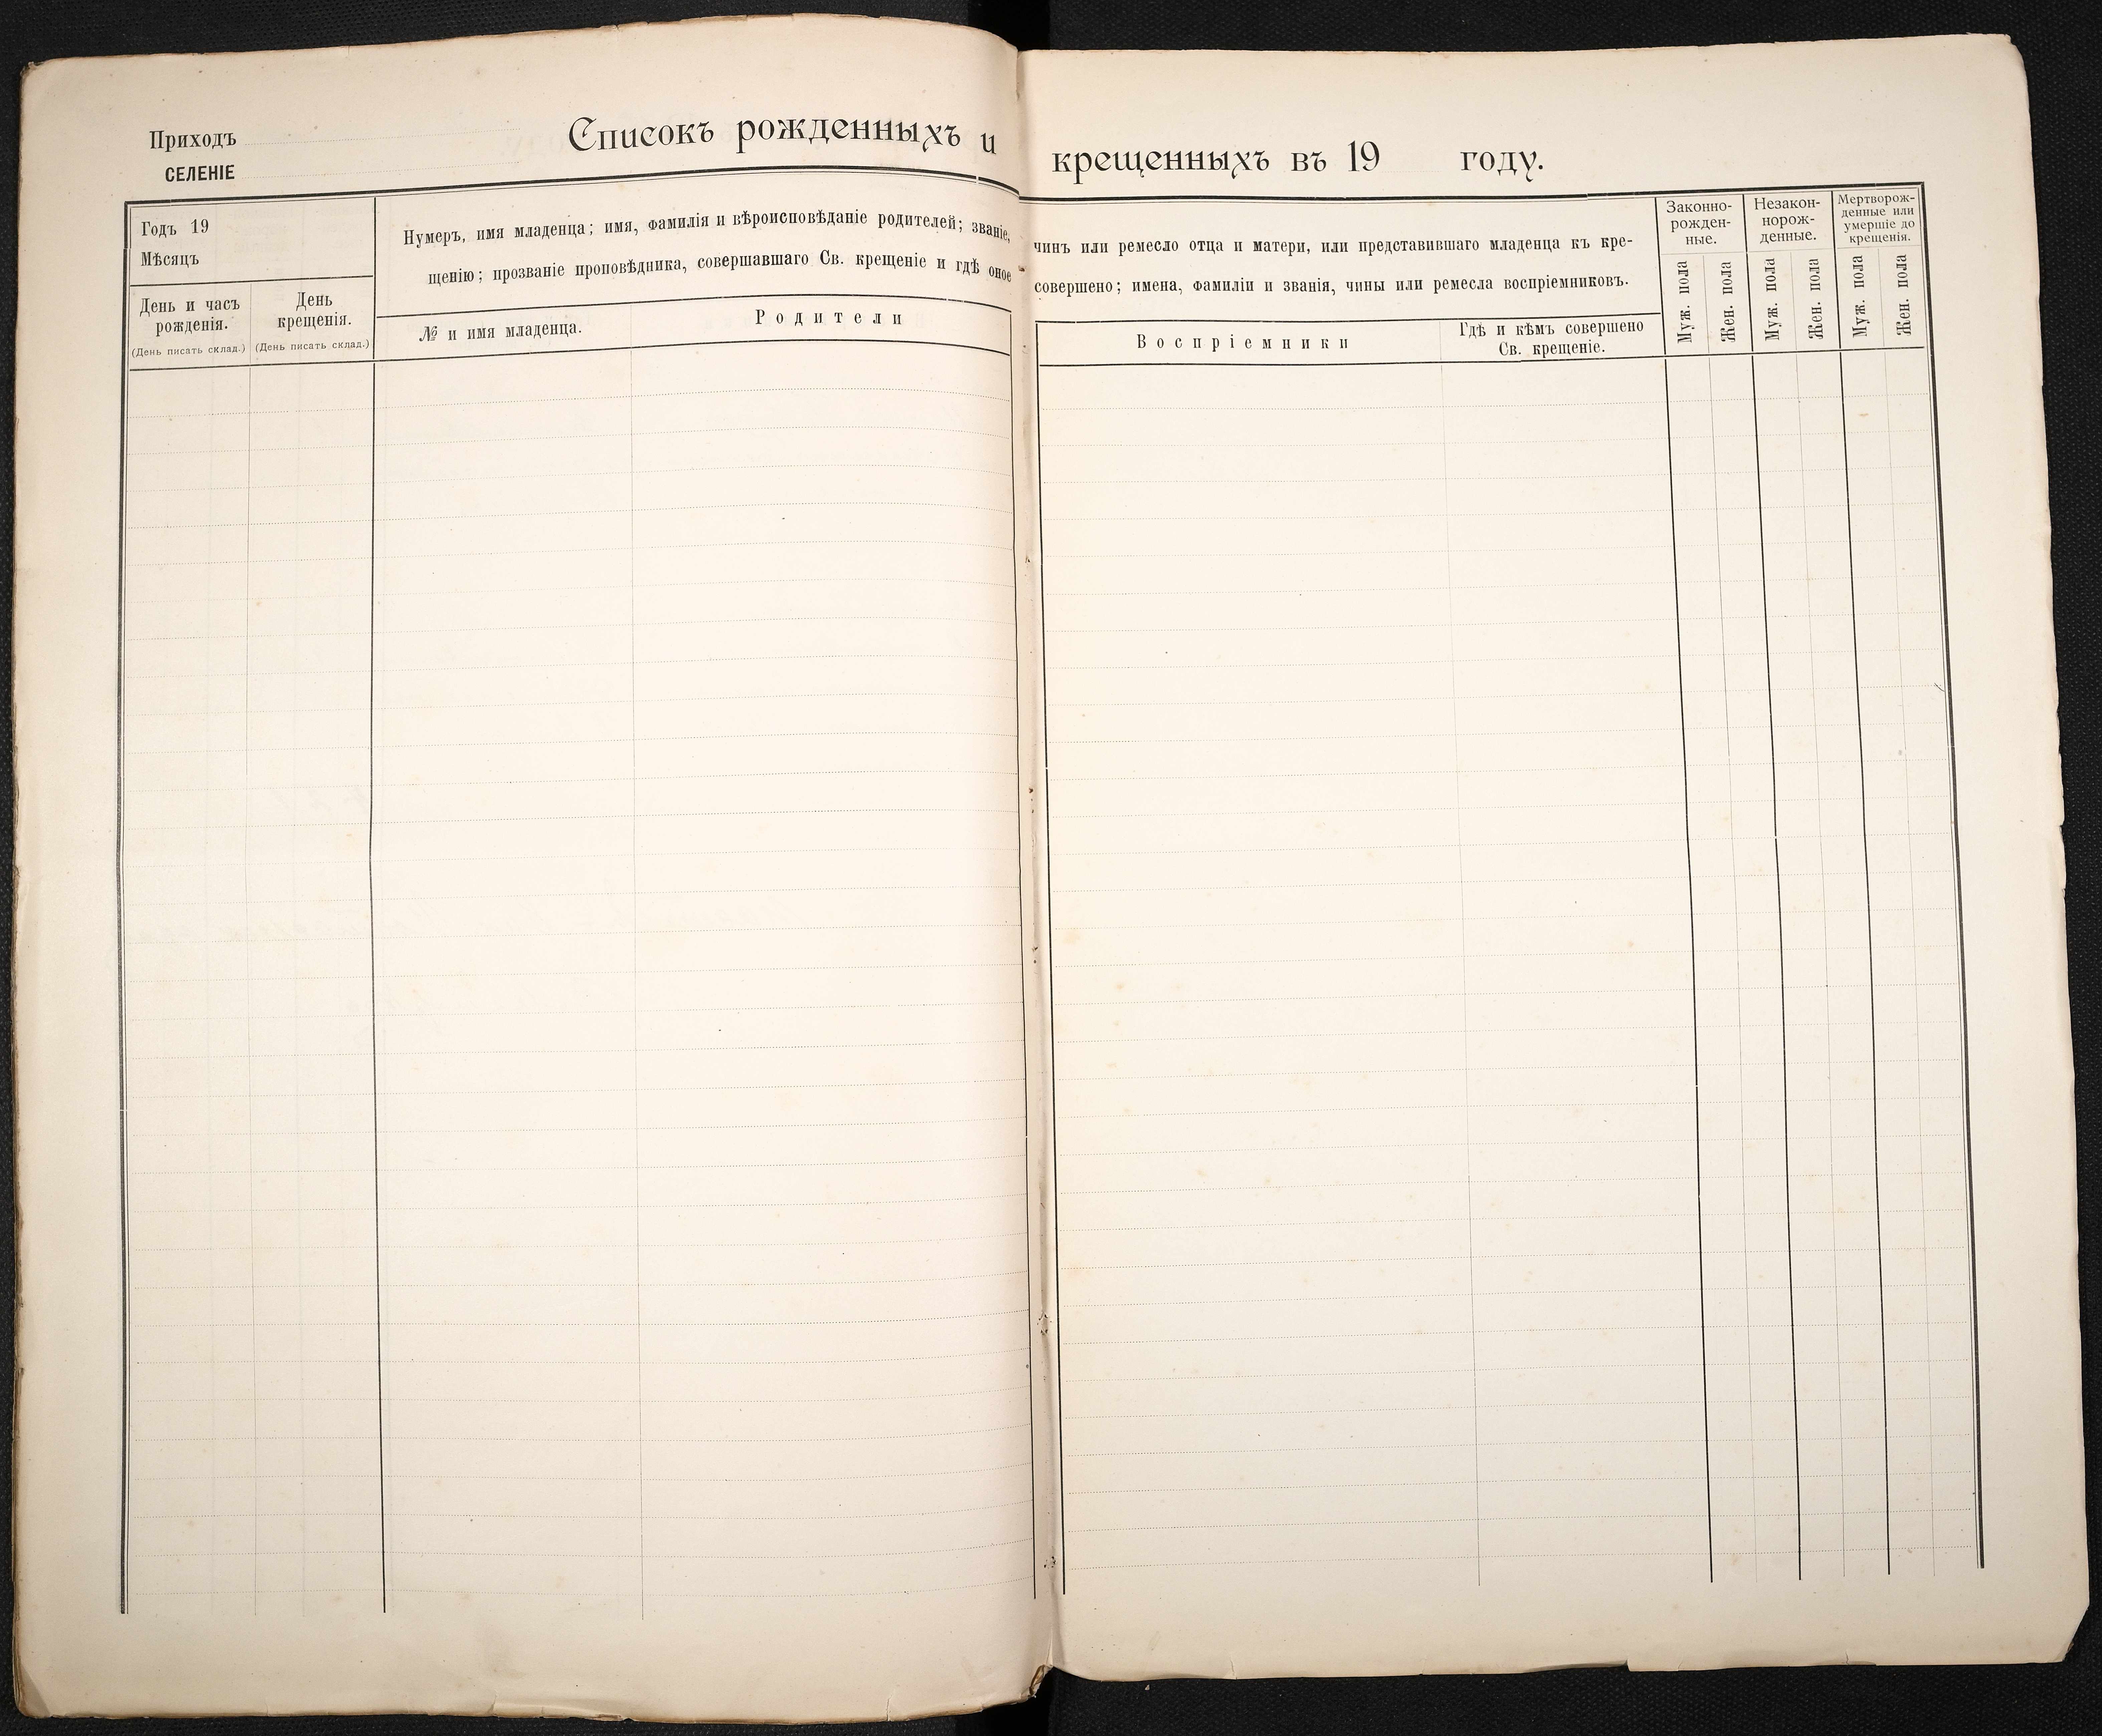 Приходъ
СЕЛЕНІЕ
Списокъ рожденныхъ и крещенныхъ въ 19 году.
Годъ 19
Мѣсяцъ
День и часъ
рожденія.
(День писать склад.)
День
крещенія.
(День писать склад.)
Нумеръ, имя младенца; имя, фамилія и вѣроисповѣданіе родителей; званіе, чинъ или ремесло отца и матери, или представившаго младенца къ кре-
щенію; прозваніе проповѣдника, совершавшаго Св. крещеніе и гдѣ оное совершено; имена, фамиліи и званія, чины или ремесла воспріемниковъ.
№ и имя младенца.
Родители
Воспріемники
Гдѣ и кѣмъ совершено
Св. крещеніе.
Законно-
рожден-
ные.
Муж. пола
Жен. пола
Незакон-
норож-
денные.
Муж. пола
Жен. пола
Мертворож-
денные или
умершіе до
крещенія.
Муж. пола
Жен. пола